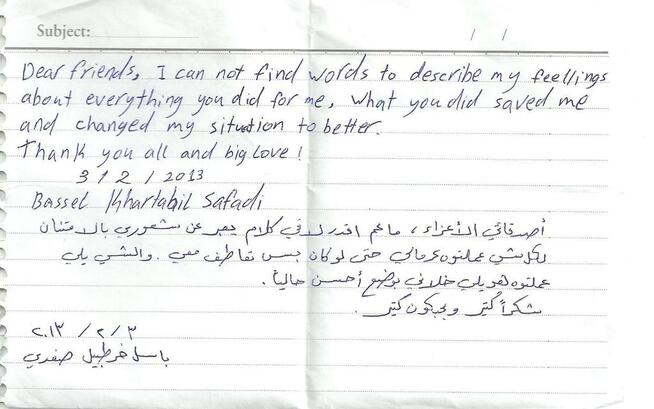 Subject: / /
Dear friends, I can not find words to describe my feellings
about everything you did for me, what you did saved me
and changed my situation to better.
Thank you all and big love!
3 / 2 / 2013
Bassel Khartabil Safadi
أصدقائي الأعزاء، ما عم اقدر لاقي كلام يعبر عن شعوري بالامتنان
لكل شي عملتوه كرمالي حتى لو كان بس تعاطف معي. والشي يلي
عملتوه هو يلي خلاني بوضع أحسن حالياً.
شكراً كتير وبحبكون كتير.
٢٠١٣ / ٢ / ٣
باسل خرطبيل صفدي